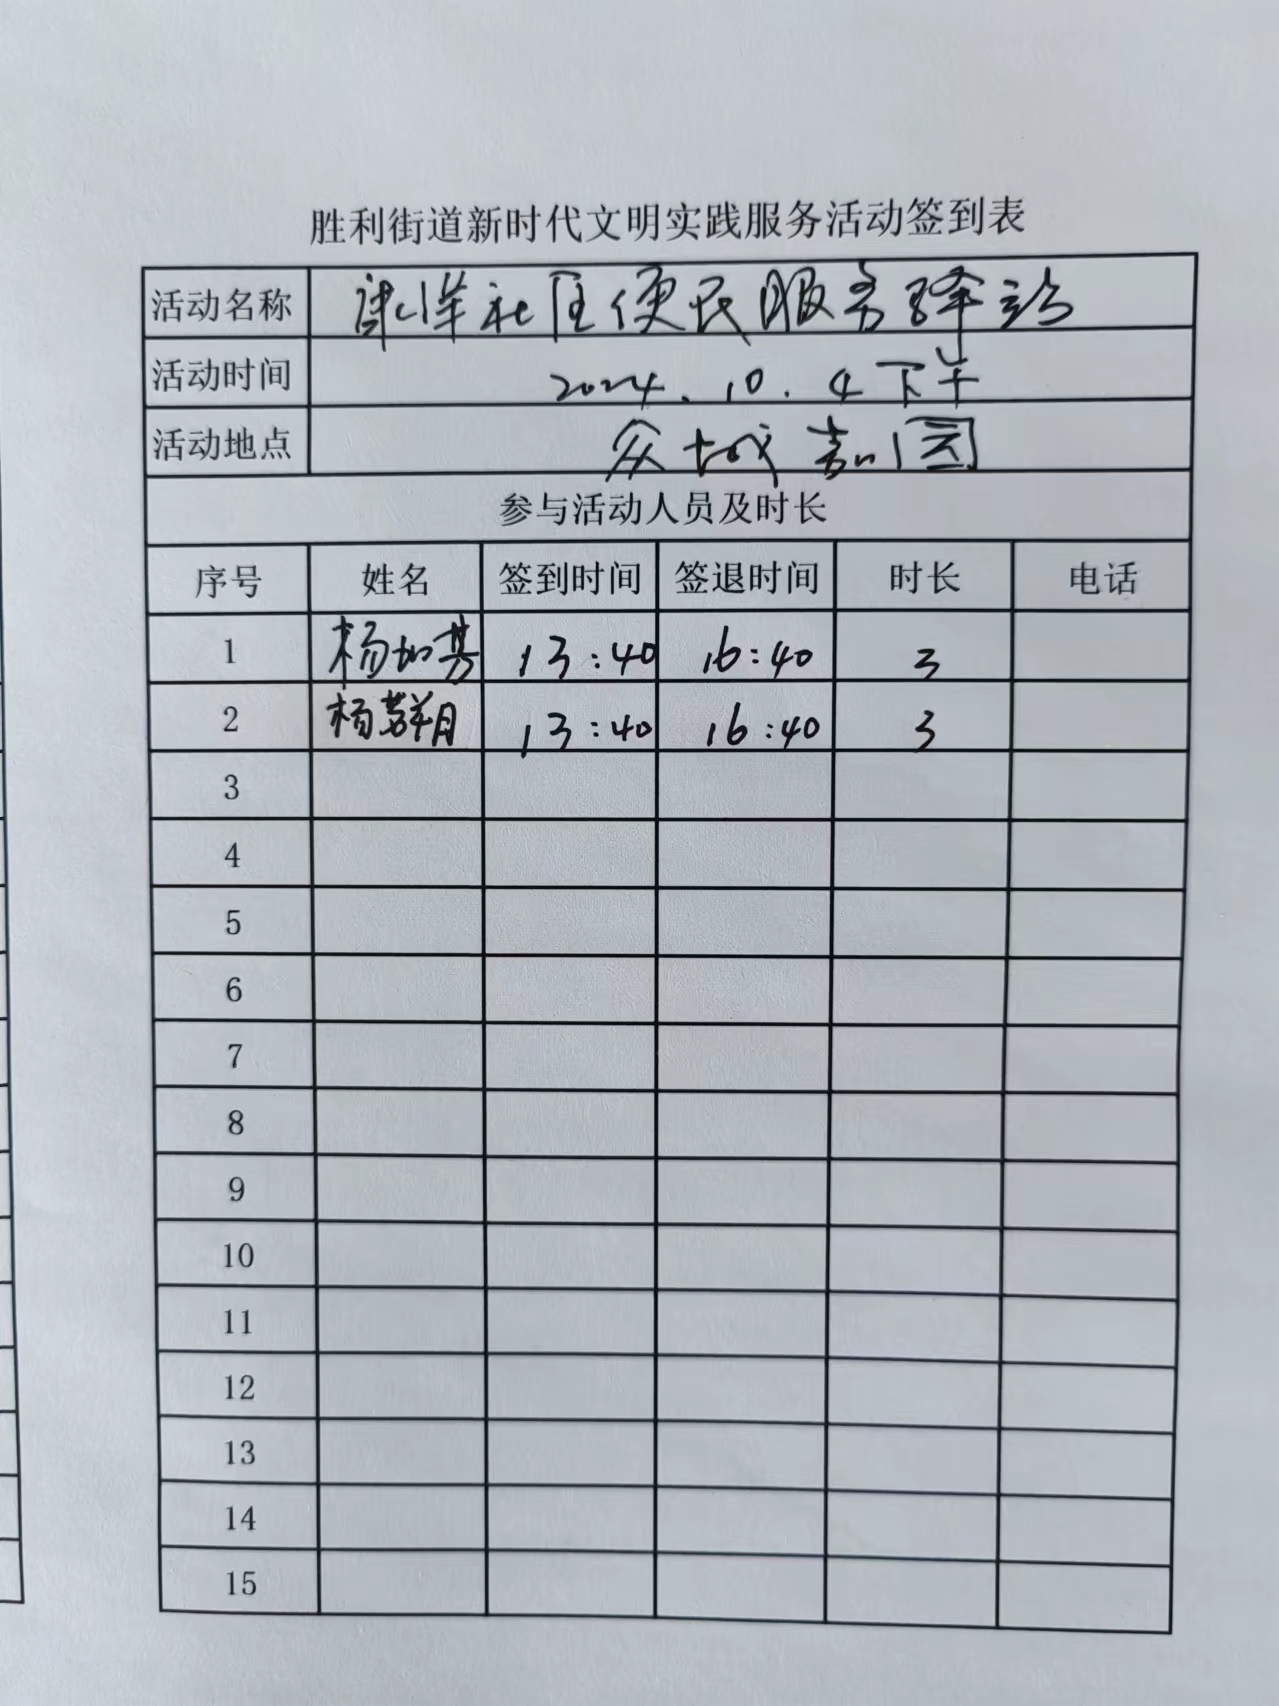 胜利街道新时代文明实践服务活动签到表
活动名称 社区便民服务驿站
活动时间 2024.10.4下午
活动地点 众城嘉园
参与活动人员及时长
序号 姓名 签到时间 签退时间 时长 电话
1 杨如芳 13:40 16:40 3
2 杨群月 13:40 16:40 3
3
4
5
6
7
8
9
10
11
12
13
14
15